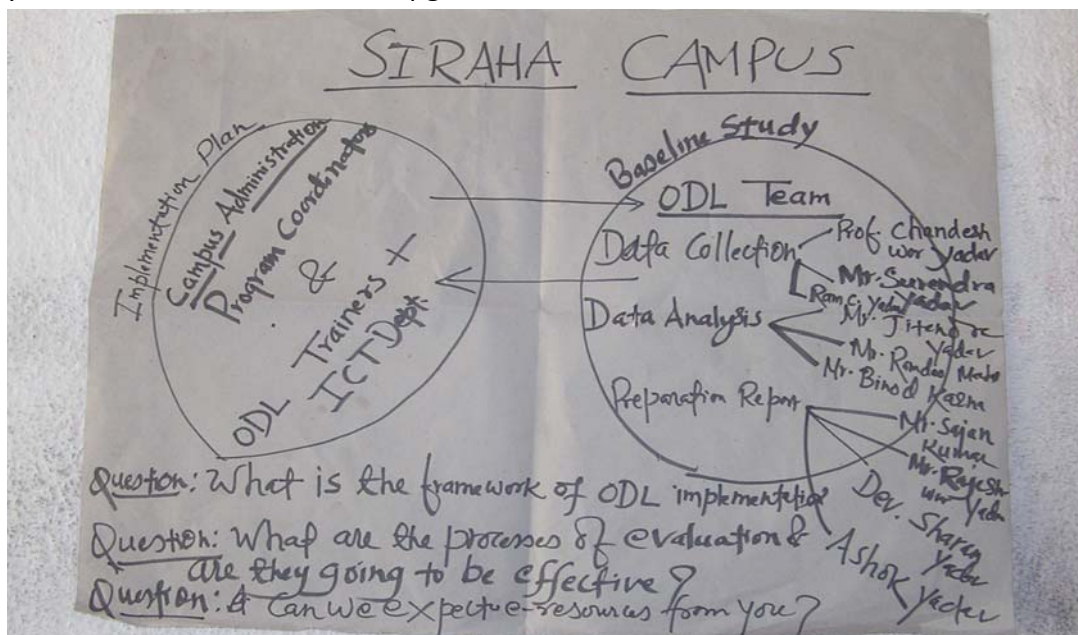 SIRAHA CAMPUS
Implementation Plan
Campus Administration
Program Coordinators
&
ODL Trainers +
ICT Dept.
Baseline Study
ODL Team
Data Collection
Prof. Chandesh
wor Yadav
Mr. Surendra
Yadav
Ram C. Yadav
Data Analysis
Mr. Jitendra
Yadav
Mr.
Mr. Binod Karn
Preparation Report
Mr. Sajan
Kumar
Mr. Rajesh
wor Yadav
Dev. Sharan
Yadav
Ashok Yadav
Question: What is the framework of ODL implementation
Question: What are the processes of evaluation &
are they going to be effective?
Question: Can we expect e-resources from you?